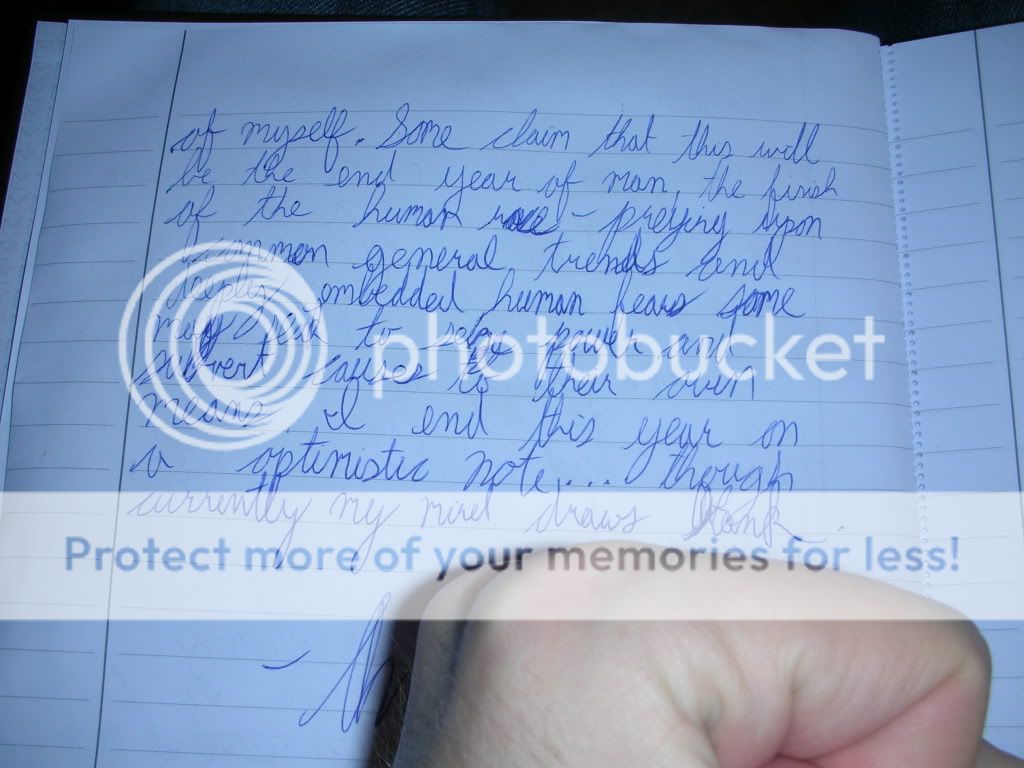 of myself. Some claim that this will
be the end year of man, the finish
of the human race - preying upon
common general trends and
deeply embedded human fears some
may seek to seize power and
subvert causes to their own
means. I end this year on
a optimistic note... though
currently my mind draws blank.
photobucket
Protect more of your memories for less!